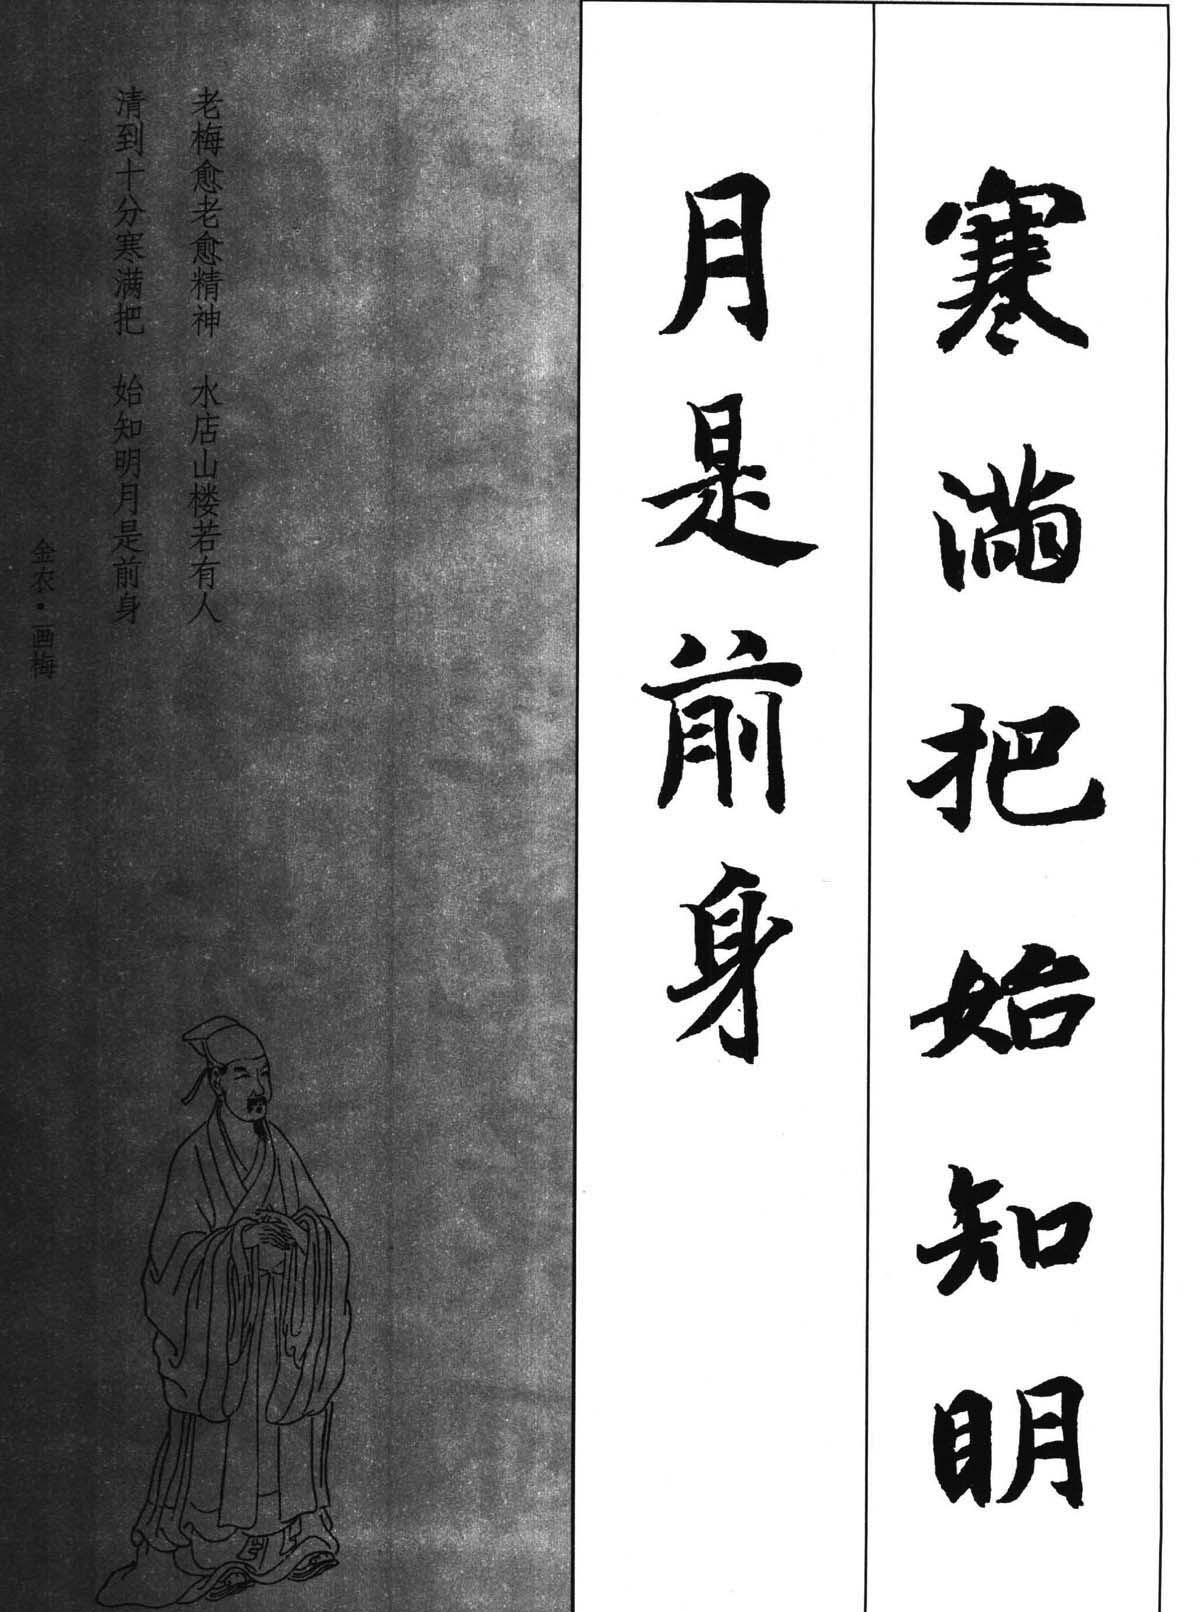 寒满把始知明
月是前身
老梅愈老愈精神 水店山楼若有人
清到十分寒满把 始知明月是前身
金农·画梅